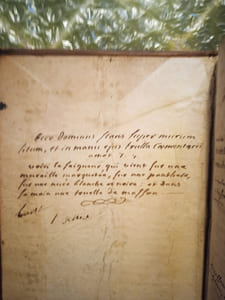 Ecce Dominus stans super murum
litum, et in manu ejus trulla cæmentarii
amos 7.
voici le seigneur qui vient sur une
muraille
sur une mice blanche et noire; et dans
la main une truelle de masson